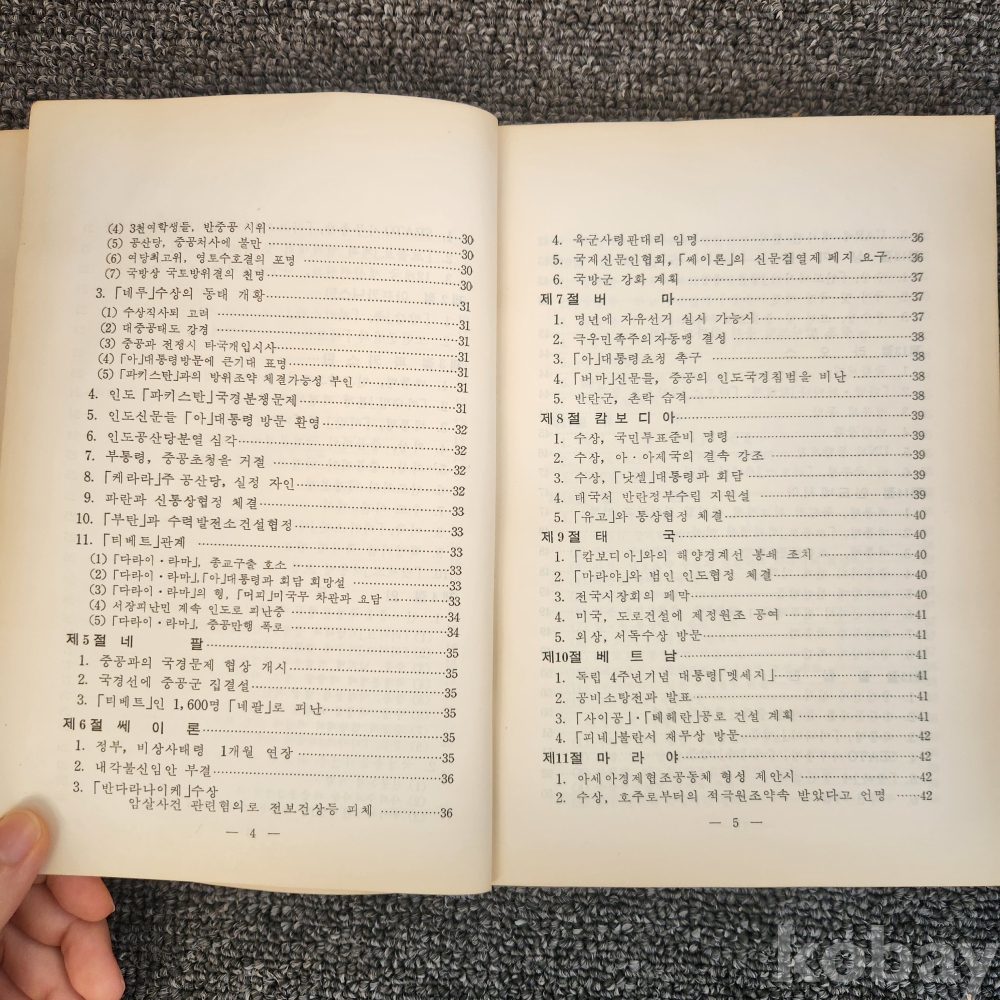 (4) 3천여학생들, 반중공 시위……30
(5) 공산당, 중공처사에 불만……30
(6) 여당최고위, 영토수호결의 표명……30
(7) 국방상 국토방위결의 천명……30
3. 「네루」수상의 동태 개황……31
(1) 수상직사퇴 고려……31
(2) 대중공태도 강경……31
(3) 중공과 전쟁시 타국개입시사……31
(4) 「아」대통령방문에 큰기대 표명……31
(5) 「파키스탄」과의 방위조약 체결가능성 부인……31
4. 인도 「파키스탄」국경분쟁문제……31
5. 인도신문들 「아」대통령 방문 환영……32
6. 인도공산당분열 심각……32
7. 부통령, 중공초청을 거절……32
8. 「케라라」주 공산당, 실정 자인……32
9. 파란과 신통상협정 체결……33
10. 「부탄」과 수력발전소건설협정……33
11. 「티베트」관계……33
(1) 「다라이·라마」, 종교구출 호소……33
(2) 「다라이·라마」, 「아」대통령과 회담 희망설……33
(3) 「다라이·라마」의 형, 「머피」미국무 차관과 요담……33
(4) 서장피난민 계속 인도로 피난중……34
(5) 「다라이·라마」, 중공만행 폭로……34
제5절 네 팔……35
1. 중공과의 국경문제 협상 개시……35
2. 국경선에 중공군 집결설……35
3. 「티베트」인 1,600명 「네팔」로 피난……35
제6절 쎄 이 론……35
1. 정부, 비상사태령 1개월 연장……35
2. 내각불신임안 부결……36
3. 「반다라나이케」수상
암살사건 관련혐의로 전보건상등 피체……36
— 4 —
4. 육군사령관대리 임명……36
5. 국제신문인협회, 「쎄이론」의 신문검열제 폐지 요구……36
6. 국방군 강화 계획……37
제7절 버 마……37
1. 명년에 자유선거 실시 가능시……37
2. 극우민족주의자동맹 결성……38
3. 「아」대통령초청 촉구……38
4. 「버마」신문들, 중공의 인도국경침범을 비난……38
5. 반란군, 촌락 습격……38
제8절 캄보디아……39
1. 수상, 국민투표준비 명령……39
2. 수상, 아·아제국의 결속 강조……39
3. 수상, 「낫셀」대통령과 회담……39
4. 태국서 반란정부수립 지원설……39
5. 「유고」와 통상협정 체결……40
제9절 태 국……40
1. 「캄보디아」와의 해양경계선 봉쇄 조치……40
2. 「마라야」와 범인 인도협정 체결……40
3. 전국시장회의 폐막……40
4. 미국, 도로건설에 제정원조 공여……41
5. 외상, 서독수상 방문……41
제10절 베 트 남……41
1. 독립 4주년기념 대통령「멧세지」……41
2. 공비소탕전과 발표……41
3. 「사이공」·「테헤란」공로 건설 계획……41
4. 「피네」불란서 재무상 방문……42
제11절 마 라 야……42
1. 아세아경제협조공동체 형성 제안시……42
2. 수상, 호주로부터의 적극원조약속 받았다고 언명……42
— 5 —
kobay